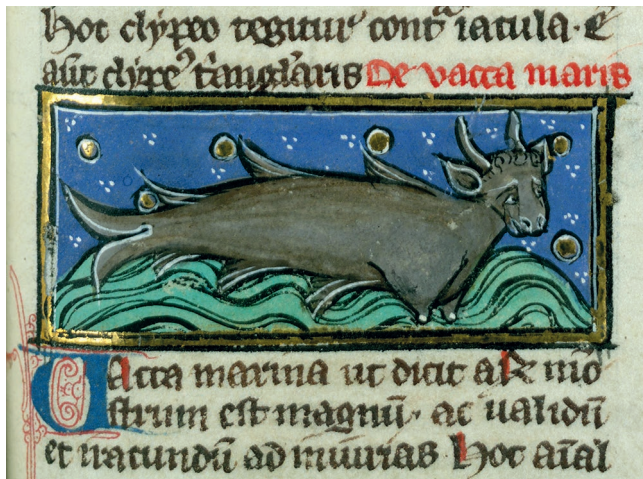 hoc clypeo tegitur cont̄ iacula · E
aūt clype⁹ t̄angl̄aris De vacca maris
Vacca marina ut dicit aliꝫ mō
strum est magnū · ac ualidū
et iracundū ad iniurias hoc aīal